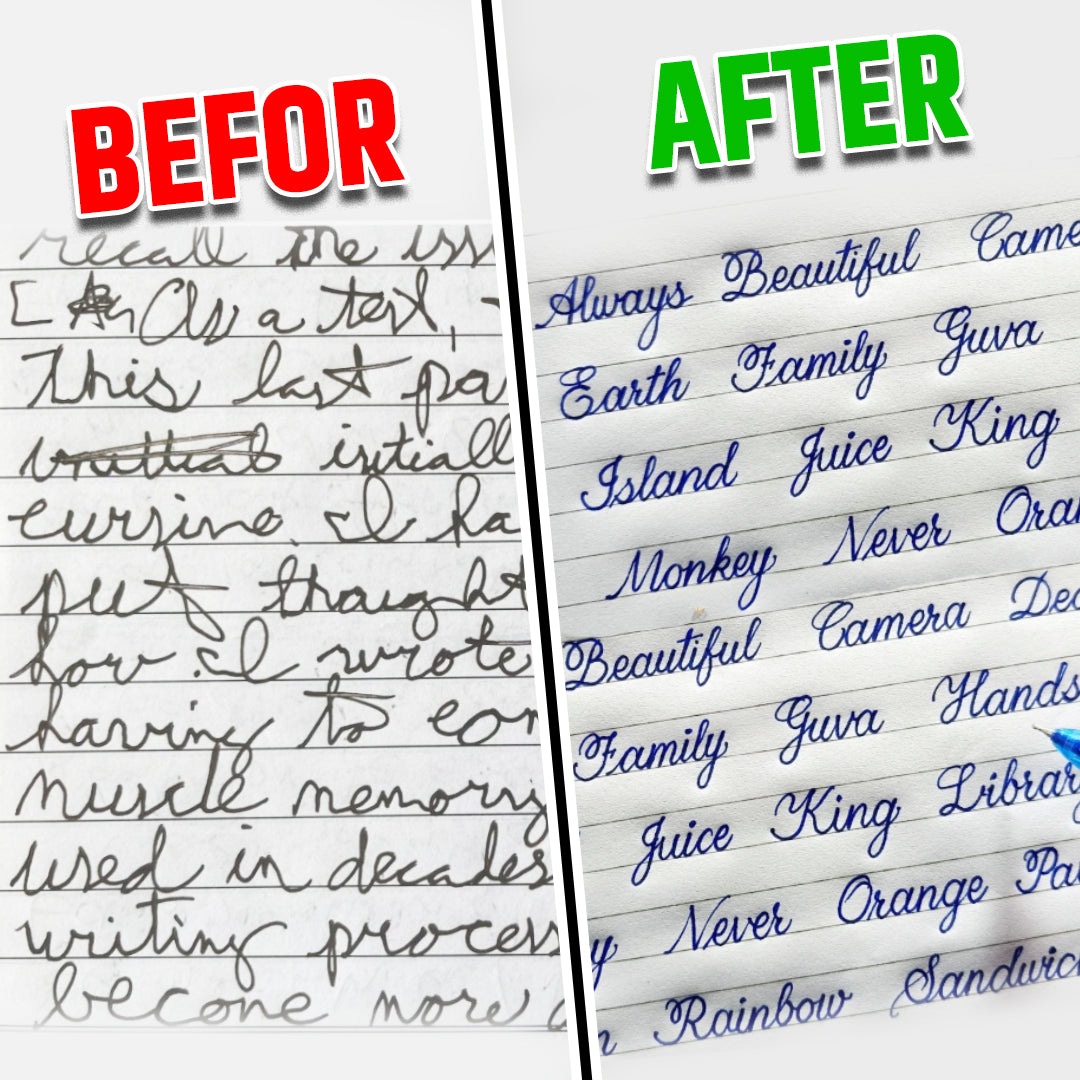 BEFOR
recall the iss
[ As a test,
This last pa
initiall
cursive I ha
put thought
how I wrote
having to con
muscle memory
used in decades
writing process
become more
AFTER
Always Beautiful Came
Earth Family Guva
Island Juice King
Monkey Never Oran
Beautiful Camera Dec
Family Guva Hands
Juice King Library
y Never Orange Pa
n Rainbow Sandwic